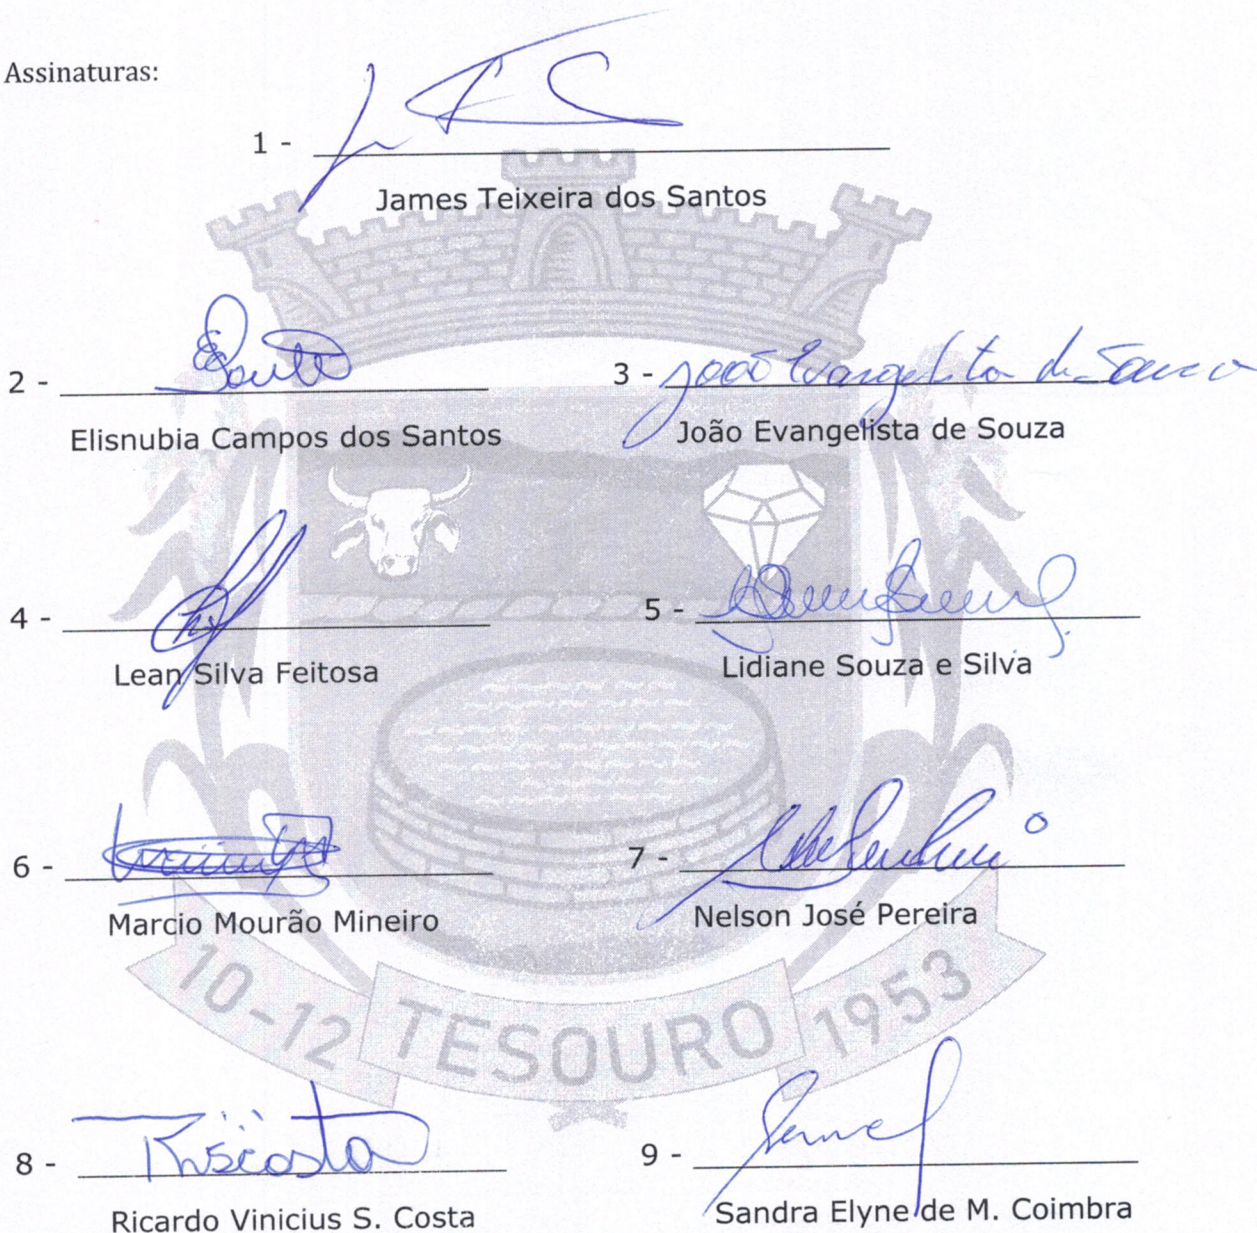 Assinaturas:
1 -
James Teixeira dos Santos
2 -
Elisnubia Campos dos Santos
3 - João Evangelista de Souza
João Evangelista de Souza
4 -
Lean Silva Feitosa
5 -
Lidiane Souza e Silva
6 -
Marcio Mourão Mineiro
7 -
Nelson José Pereira
10-12 TESOURO 1953
8 -
Ricardo Vinicius S. Costa
9 -
Sandra Elyne de M. Coimbra